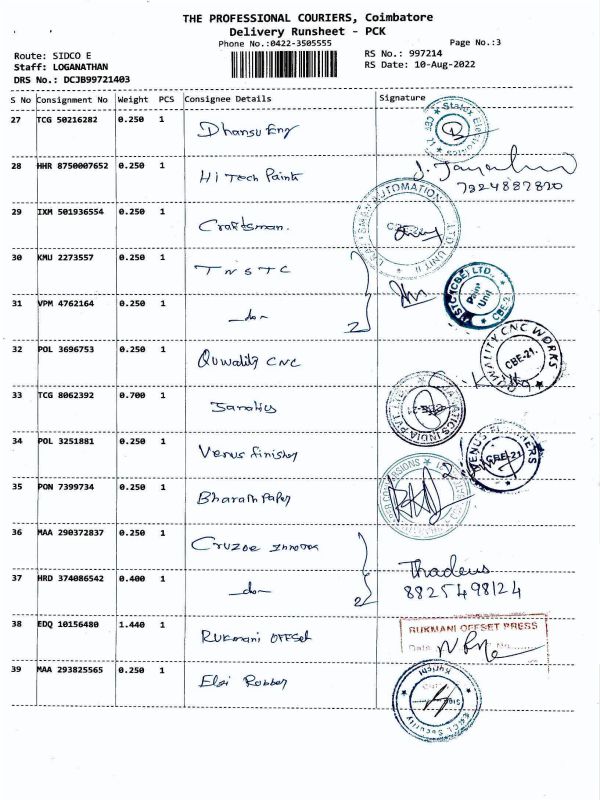 THE PROFESSIONAL COURIERS, Coimbatore
Delivery Runsheet - PCK
Phone No.:0422-3505555
Page No.:3
Route: SIDCO E
RS No.: 997214
Staff: LOGANATHAN
RS Date: 10-Aug-2022
DRS No.: DCJB99721403
S No Consignment No Weight PCS Consignee Details Signature
27 TCG 50216282 0.250 1 Dhansu Eng
28 HHR 8750007652 0.250 1 Hi Tech Paints
7224887820
29 IXM 501936554 0.250 1 Craftsman.
AUTOMATION
LTD. UNIT II
30 KMU 2273557 0.250 1 TNSTC
2
(CBE) LTD.,
Paint
Unit
CBE-21
31 VPM 4762164 0.250 1 -do-
32 POL 3696753 0.250 1 Quwality CNC
QUWALITY CNC WORKS
CBE-21.
33 TCG 8062392 0.700 1
INDIA PVT LTD
34 POL 3251881 0.250 1 Venus Finisher
VENUS FINISHERS
CBE-21
35 PON 7399734 0.250 1 Bharath Paper
36 MAA 290372837 0.250 1 Cruzoe Innova
2
Thadeus
8825498124
37 HRD 374086542 0.400 1 -do-
38 EDQ 10156480 1.440 1 Rukmani OFFSet
RUKMANI OFFSET PRESS
Date
No
39 MAA 293825565 0.250 1 Elgi Rubber
Kurichi
Security